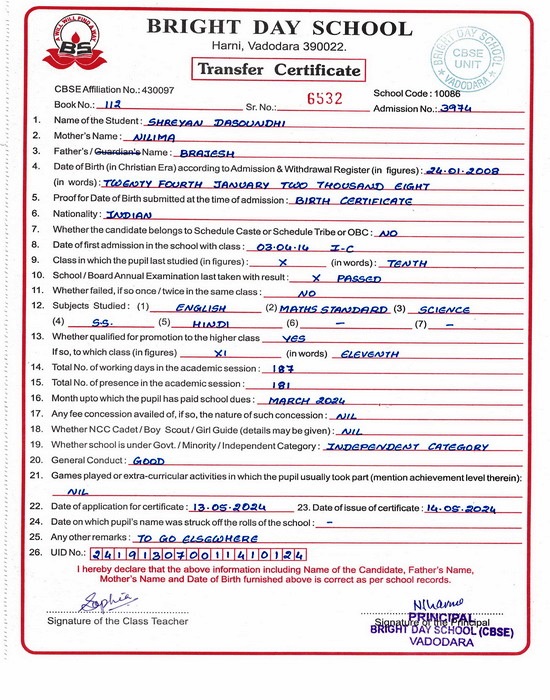 A WILL WILL FIND A WAY
BS
BRIGHT DAY SCHOOL
Harni, Vadodara 390022.
Transfer Certificate
BRIGHT DAY SCHOOL
CBSE
UNIT
VADODARA
CBSE Affiliation No.: 430097
School Code : 10086
Book No.: 112 Sr. No.: 6532 Admission No.: 3974
1. Name of the Student : SHREYAN DASOUNDHI
2. Mother's Name : NILIMA
3. Father's / Guardian's Name : BRAJESH
4. Date of Birth (in Christian Era) according to Admission & Withdrawal Register (in figures) : 24.01.2008
(in words) : TWENTY FOURTH JANUARY TWO THOUSAND EIGHT
5. Proof for Date of Birth submitted at the time of admission : BIRTH CERTIFICATE
6. Nationality : INDIAN
7. Whether the candidate belongs to Schedule Caste or Schedule Tribe or OBC : NO
8. Date of first admission in the school with class : 03.04.14 I-C
9. Class in which the pupil last studied (in figures) : X (in words) : TENTH
10. School / Board Annual Examination last taken with result : X PASSED
11. Whether failed, if so once / twice in the same class : NO
12. Subjects Studied : (1) ENGLISH (2) MATHS STANDARD (3) SCIENCE
(4) S.S. (5) HINDI (6) – (7) –
13. Whether qualified for promotion to the higher class YES
If so, to which class (in figures) XI (in words) ELEVENTH
14. Total No. of working days in the academic session : 187
15. Total No. of presence in the academic session : 181
16. Month upto which the pupil has paid school dues : MARCH 2024
17. Any fee concession availed of, if so, the nature of such concession : NIL
18. Whether NCC Cadet / Boy Scout / Girl Guide (details may be given) : NIL
19. Whether school is under Govt. / Minority / Independent Category : INDEPENDENT CATEGORY
20. General Conduct : GOOD
21. Games played or extra-curricular activities in which the pupil usually took part (mention achievement level therein) :
NIL
22. Date of application for certificate : 13.05.2024 23. Date of issue of certificate : 14.05.2024
24. Date on which pupil's name was struck off the rolls of the school : –
25. Any other remarks : TO GO ELSEWHERE
26. UID No.: 241913070011410124
I hereby declare that the above information including Name of the Candidate, Father's Name,
Mother's Name and Date of Birth furnished above is correct as per school records.
Sophia
Signature of the Class Teacher
Signature of the Principal
PRINCIPAL
BRIGHT DAY SCHOOL (CBSE)
VADODARA